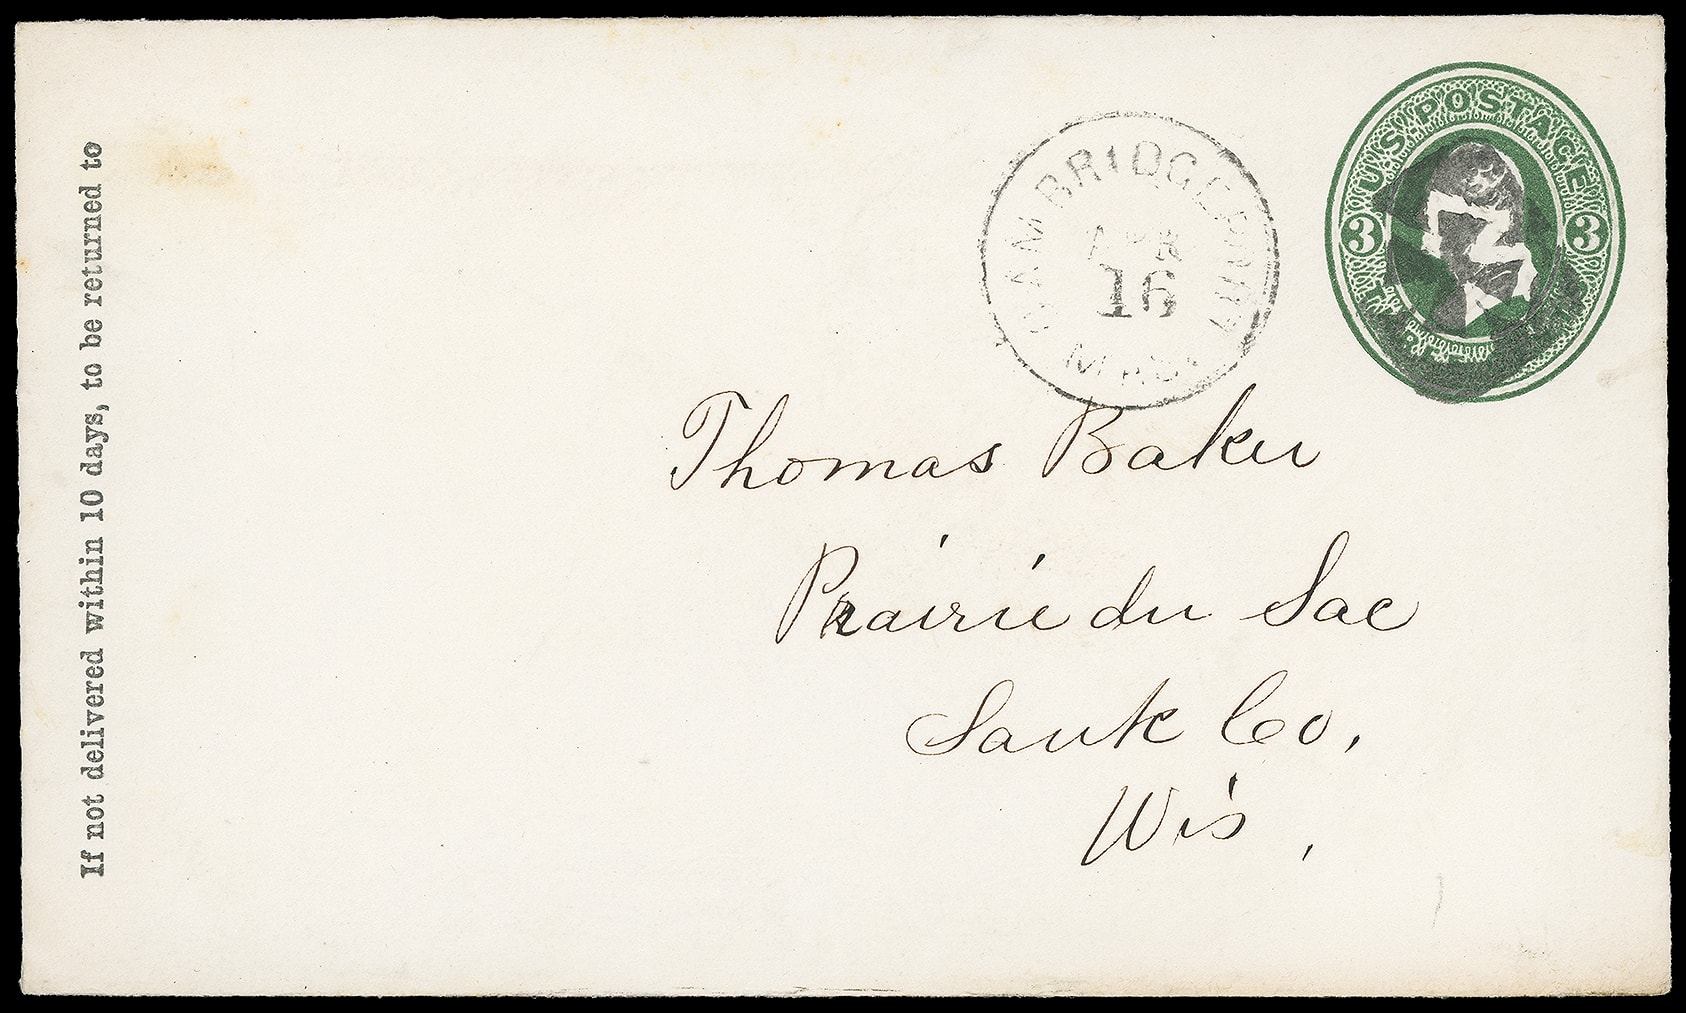 If not delivered within 10 days, to be returned to
CAMBRIDGEPORT
APR
16
MASS
U.S. POSTAGE
3 3
Thomas Baker
Prairie du Sac
Sauk Co.
Wis,